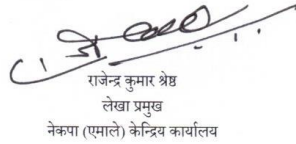 राजेन्द्र कुमार श्रेष्ठ
लेखा प्रमुख
नेकपा (एमाले) केन्द्रिय कार्यालय